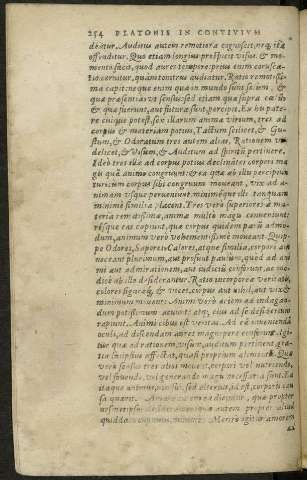 254 PLATONIS IN CONVIVIVM
detur. Auditus autem remotiora cognoscit, neq; ita
offenditur. Quo etiam longius prospicit visus. et mo-
mento facit, quod aures tempore prius enim corusca-
tio cernitur, quàm tonitru audiatur. Ratio remotissi-
ma capit: neque enim quæ in mundo sunt solum, &
quæ præsentia vt sensus: sed etiam quæ supra cœlū
& quæ fuerunt, aut futura sunt, percipit. Ex his pate-
re cuique potest, sex illarum animæ virium, tres ad
corpus & materiam potius, Tactum scilicet, & Gu-
stum, & Odoratum: tres autem alias, Rationem vi-
delicet, & Visum, & Auditum ad spiritū pertinere.
Ideo tres illæ ad corpus potius declinātes corpori ma-
gis quā animo congruunt: & ea quæ ab illis percipiun-
tur cùm corpus sibi congruum moueant, vix ad a-
nimam vsque perueniunt, minimeque illi tanquam
minime similia placent. Tres verò superiores à ma-
teria remotissimæ, animæ multo magis conueniunt:
résque eas capiunt, quæ corpus quidem parū admo-
dum, animum verò vehementissimè moueant. Quip-
pe Odores, Sapores, Calores, atque similia, corpori aut
nocent plurimum, aut prosunt
ani aut admirationem, aut iudiciū conferunt, ac mo-
dicè ab illo desiderantur. Ratio incorporeæ veritatis,
colores, figuræq; & voces, corpus aut nihil, aut vix &
minimum mouent: Animi verò aciem ad indagan-
dum potissimum acuunt: atq; eius ad se desiderium
rapiunt. Animi cibus est veritas. Ad eā inueniendā
oculi, ad discendam aures magnopere conferunt. Igi-
tur quæ ad rationem, visum, auditum pertinent, gra-
tia sui ipsius affectat, quasi proprium alimentū. Quæ
verò sensus tres alios mouent, corpori vel nutriendo,
vel fouendo, vel generando magis necessaria sunt. Ea
itaque animus, non sui, sed alterius, id est, corporis cau-
sa quærit.